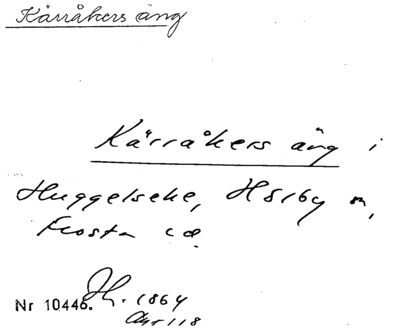 Kärråkers äng
Kärråkers äng i
Huggelseke, Hörby sn,
Frosta hd.
Nr 10446. Jh. 1864
Akt 118